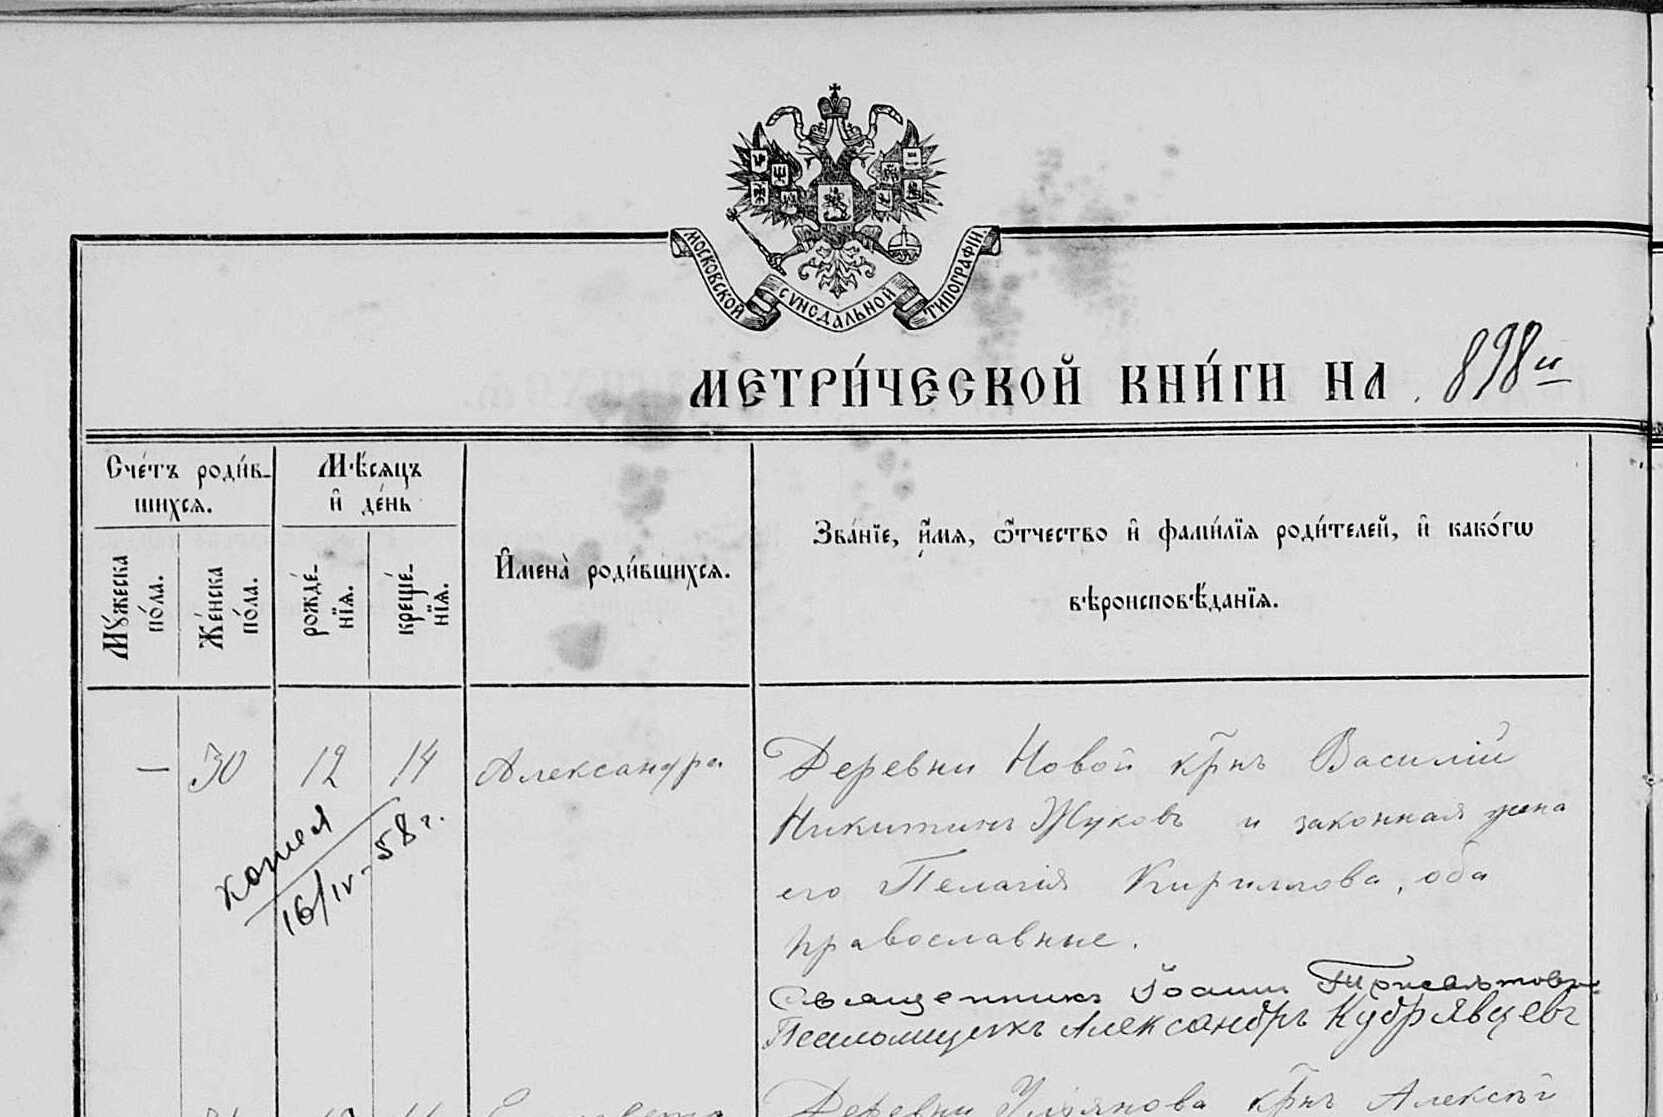 МОСКОВСКОЙ СѴНОДАЛЬНОЙ ТИПОГРАФІИ.
МЕТРИ́ЧЕСКОЙ КНИ́ГИ НА 898й
Сче́тъ роди́в-
шихся.
Мꙋ́жеска
по́ла.
Же́нска
по́ла.
Мѣ́сяцъ
и҆ де́нь
рожде́-
нїя.
креще́-
нїя.
И҆мена̀ роди́вшихся.
Зва́нїе, и҆́мя, ѻ҆́тчество и҆ фами́лїя роди́телей, и҆ како́гѡ
вѣроисповѣ́данїя.
— 30 12 14 Александра
Деревни Новой крнъ Василій
Никитинъ Жуковъ и законная жена
его Пелагія Кириллова, оба
православные.
копия
16/IV-58 г.
Священникъ Іоаннъ
Псаломщикъ Александръ Кудрявцевъ
Деревни Ульянова крнъ Алексѣй